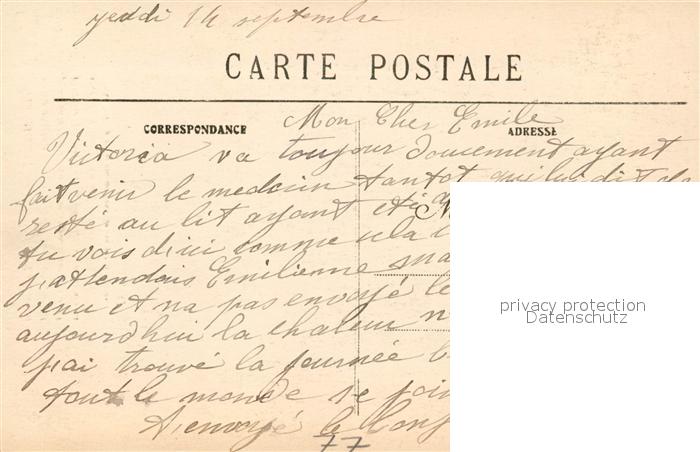 jeddi 14 septembre
CARTE POSTALE
CORRESPONDANCE
ADRESSE
Mon Cher Emile
Victoria va toujour doucement ayant
fait venir le medecin tantot qui lui dit de
resté au lit ayant eté
M
tu vois dici comme cela
j'attendais Emilienne
venu et na pas envoyé le
aujourdhui la chaleur
j'ai trouvé la journée
tout le monde se
envoyé le
77
privacy protection
Datenschutz